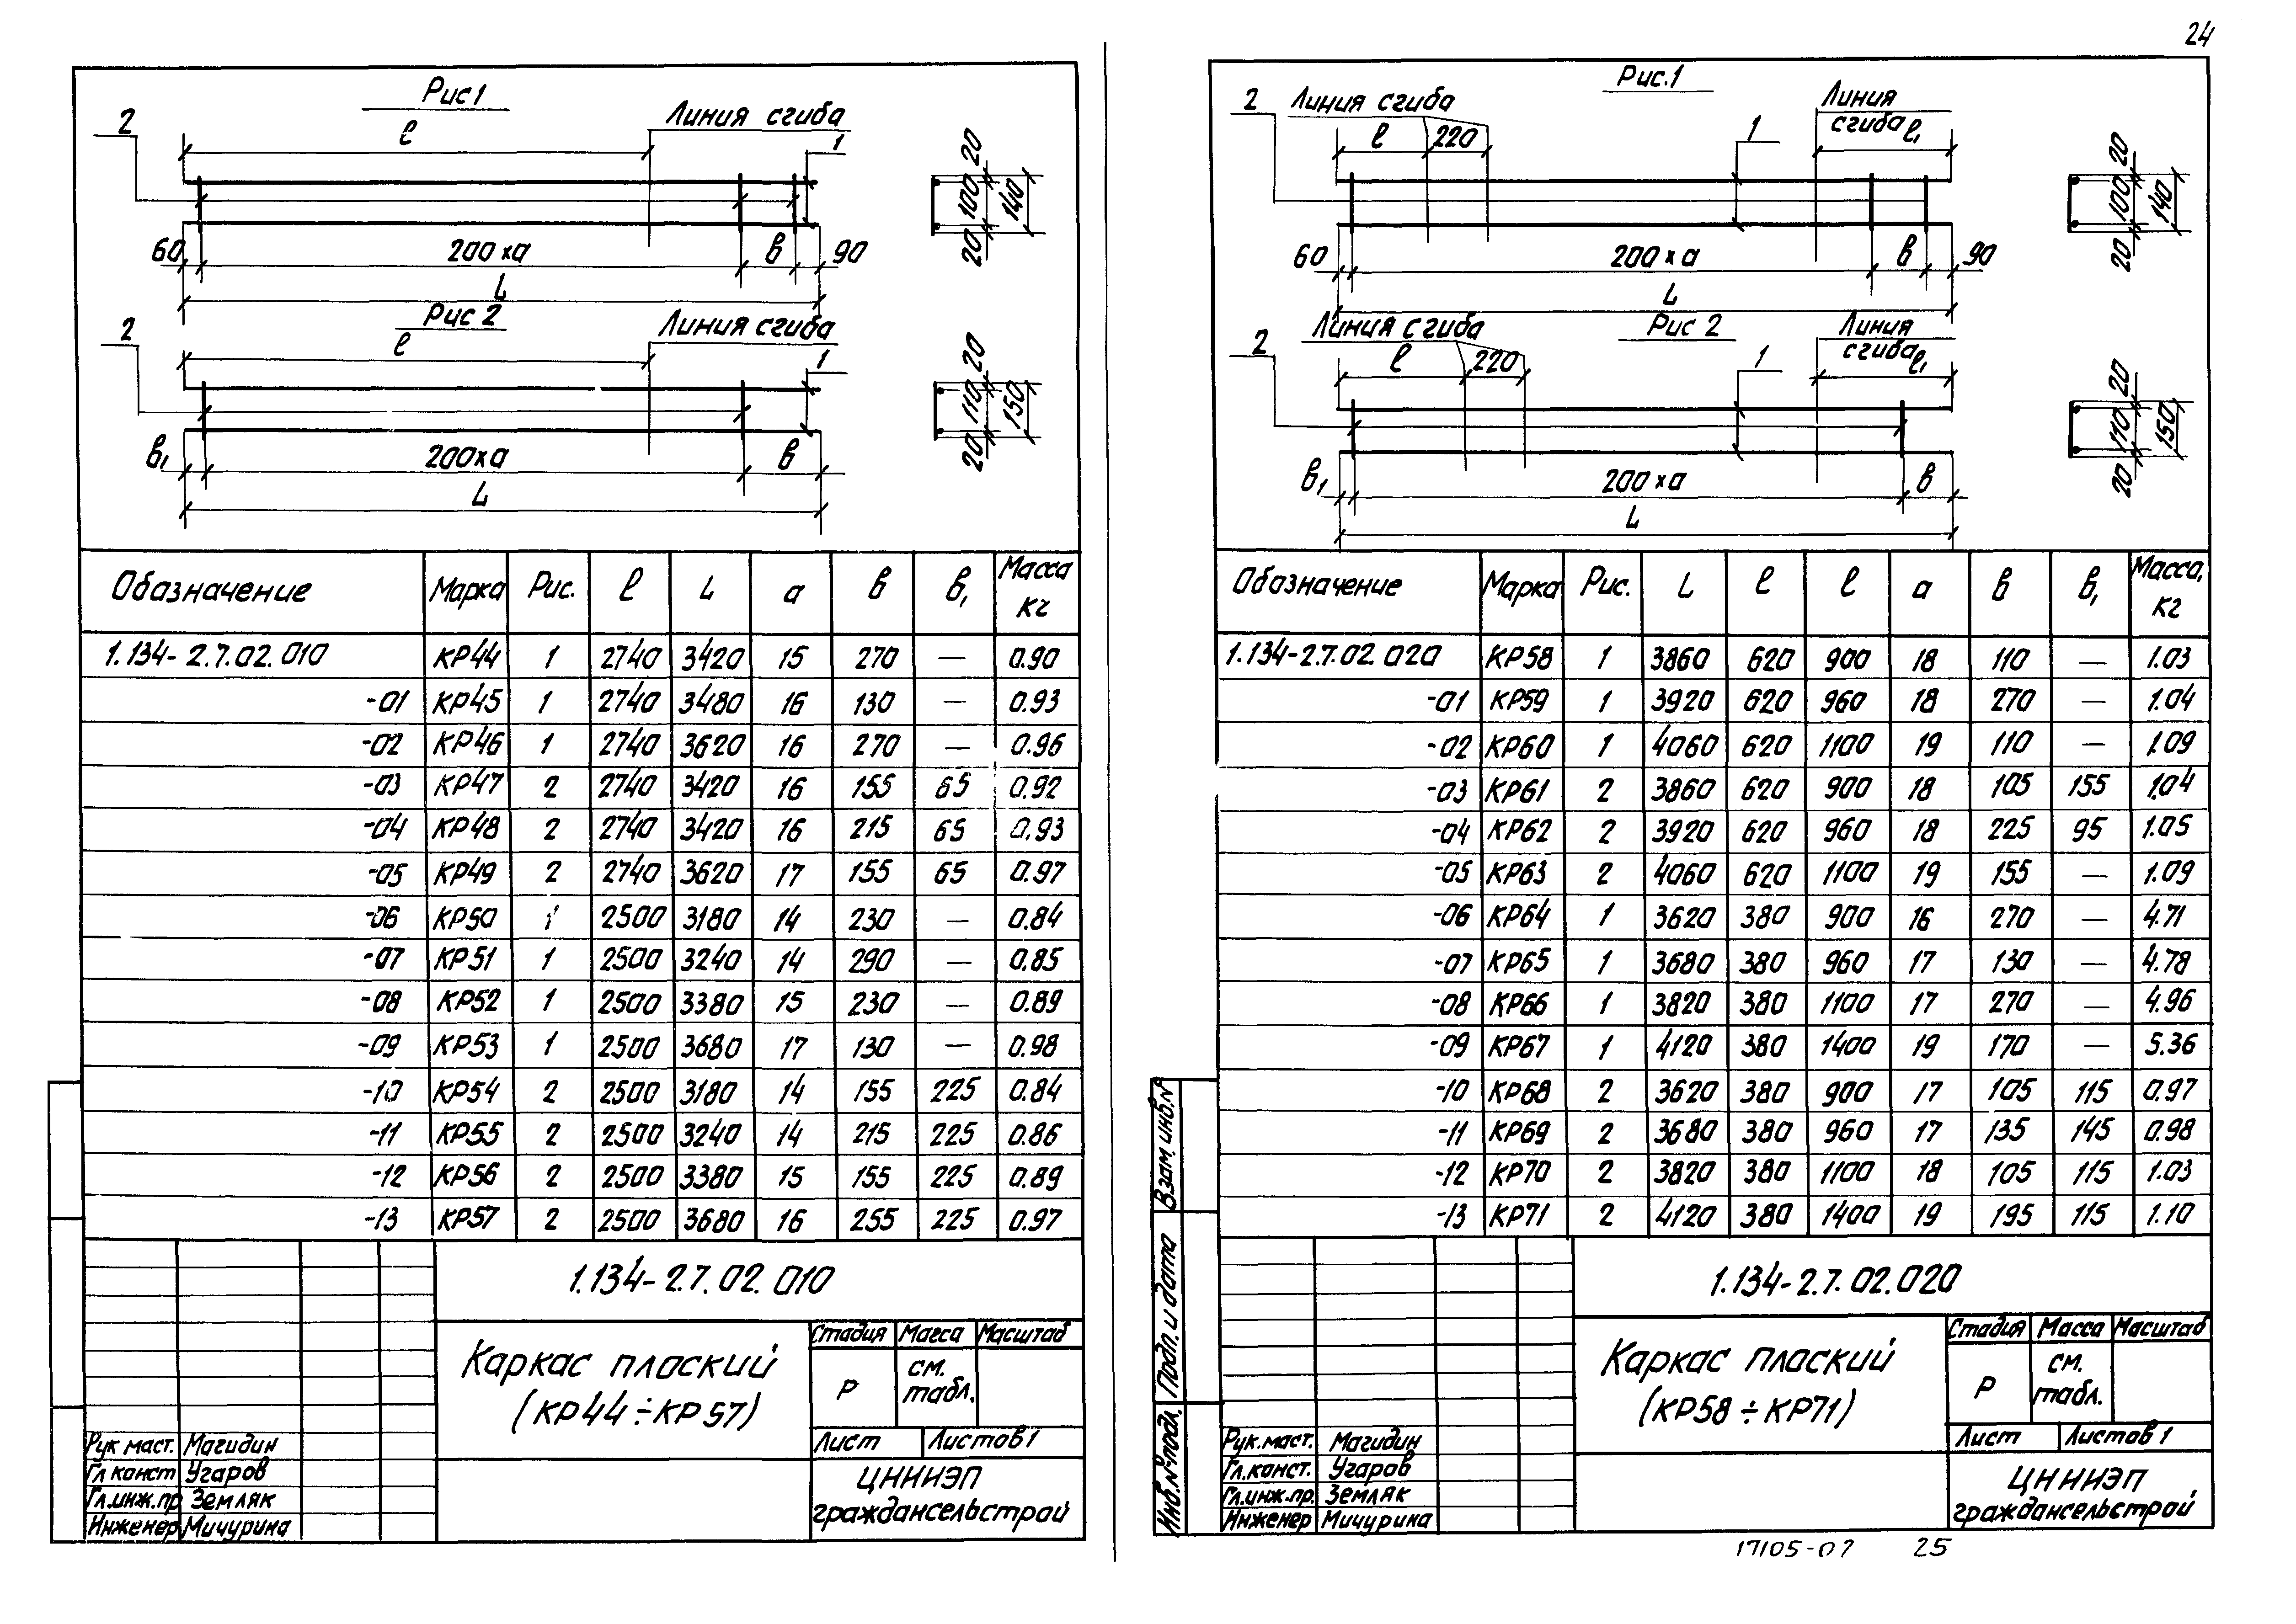 24
Рис 1
2
ℓ
Линия сгиба
1
60
200 ха
в
90
L
20
100
140
20
Рис 2
2
ℓ
Линия сгиба
1
в₁
200ха
в
L
20
110
150
20
Обозначение Марка Рис. ℓ L а в в₁ Масса кг
1.134-2.7.02.010 КР44 1 2740 3420 15 270 — 0.90
-01 КР45 1 2740 3480 16 130 — 0.93
-02 КР46 1 2740 3620 16 270 — 0.96
-03 КР47 2 2740 3420 16 155 65 0.92
-04 КР48 2 2740 3420 16 215 65 0.93
-05 КР49 2 2740 3620 17 155 65 0.97
-06 КР50 1 2500 3180 14 230 — 0.84
-07 КР51 1 2500 3240 14 290 — 0.85
-08 КР52 1 2500 3380 15 230 — 0.89
-09 КР53 1 2500 3680 17 130 — 0.98
-10 КР54 2 2500 3180 14 155 225 0.84
-11 КР55 2 2500 3240 14 215 225 0.86
-12 КР56 2 2500 3380 15 155 225 0.89
-13 КР57 2 2500 3680 16 255 225 0.97
1.134-2.7.02.010
Каркас плоский
(КР44÷КР57)
Стадия Масса Масштаб
Р см. табл.
Лист Листов 1
ЦНИИЭП
граждансельстрой
Рук маст. Магидин
Гл конст Угаров
Гл.инж.пр Земляк
Инженер Мичурина
Рис.1
2
Линия сгиба
ℓ
220
1
Линия
сгиба ℓ₁
60
200 ха
в
90
L
20
100
140
20
Рис 2
2
Линия сгиба
ℓ
220
1
Линия
сгиба ℓ₁
в₁
200 ха
в
L
20
110
150
20
Обозначение Марка Рис. L ℓ ℓ а в в₁ Масса, кг
1.134-2.7.02.020 КР58 1 3860 620 900 18 110 — 1.03
-01 КР59 1 3920 620 960 18 270 — 1.04
-02 КР60 1 4060 620 1100 19 110 — 1.09
-03 КР61 2 3860 620 900 18 105 155 1.04
-04 КР62 2 3920 620 960 18 225 95 1.05
-05 КР63 2 4060 620 1100 19 155 — 1.09
-06 КР64 1 3620 380 900 16 270 — 4.71
-07 КР65 1 3680 380 960 17 130 — 4.78
-08 КР66 1 3820 380 1100 17 270 — 4.96
-09 КР67 1 4120 380 1400 19 170 — 5.36
-10 КР68 2 3620 380 900 17 105 115 0.97
-11 КР69 2 3680 380 960 17 135 145 0.98
-12 КР70 2 3820 380 1100 18 105 115 1.03
-13 КР71 2 4120 380 1400 19 195 115 1.10
1.134-2.7.02.020
Каркас плоский
(КР58÷КР71)
Стадия Масса Масштаб
Р см. табл.
Лист Листов 1
ЦНИИЭП
граждансельстрой
Рук.маст. Магидин
Гл.конст. Угаров
Гл.инж.пр. Земляк
Инженер Мичурина
Взам.инв.№
Подп. и дата
Инв.№подл.
17105-02 25